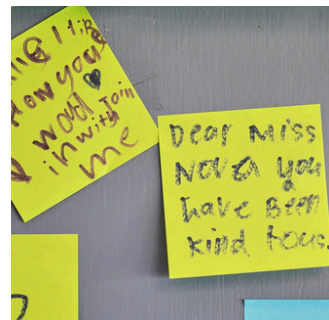 I like
How you
would
in with Join
me
Dear Miss
Nova you
have Been
kind to us.